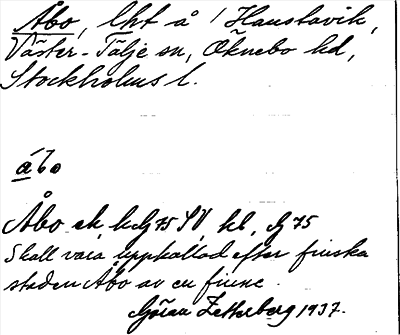 Åbo, lht å Hanstavik,
Väster-Tälje sn, Öknebo hd,
Stockholms l.
åbo
Åbo ek kbl G 75 SV, hl, G 75
Skall vara uppkallad efter finska
staden Åbo av en finne.
Göran Zetterberg 1937.